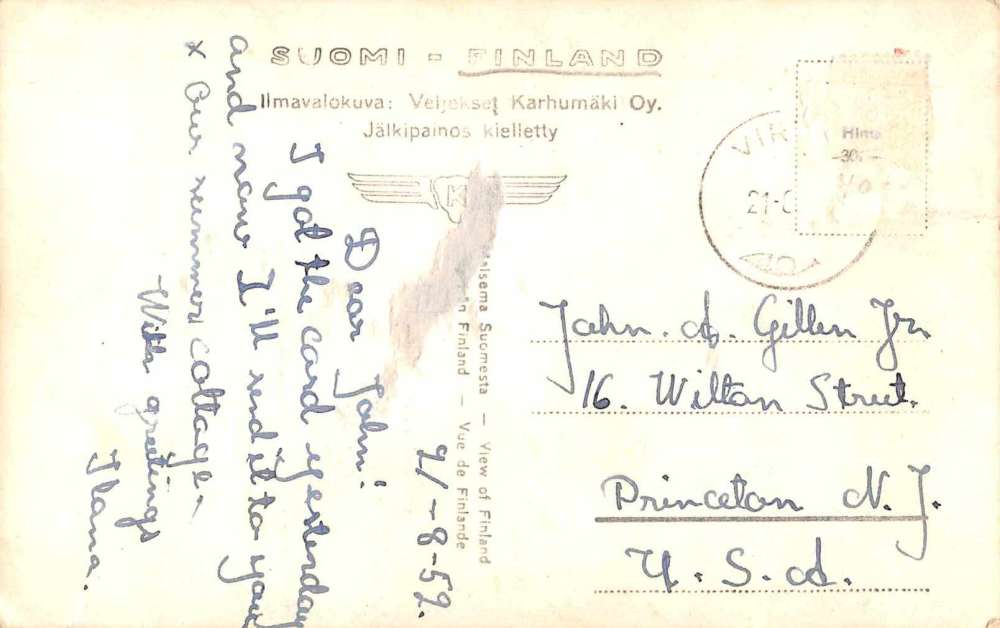 SUOMI - FINLAND
Ilmavalokuva: Veljekset Karhumäki Oy.
Jälkipainos kielletty
K
Maisema Suomesta — View of Finland
Finland — Vue de Finlande
Hinta
21-
9/-8-52.
Dear John!
I got the card yesterday
and now I'll send it to you
x Our summer cottage.
With greetings
John. A. Gillen Jr.
16. Wiltan Street.
Princeton N. J.
U. S. A.